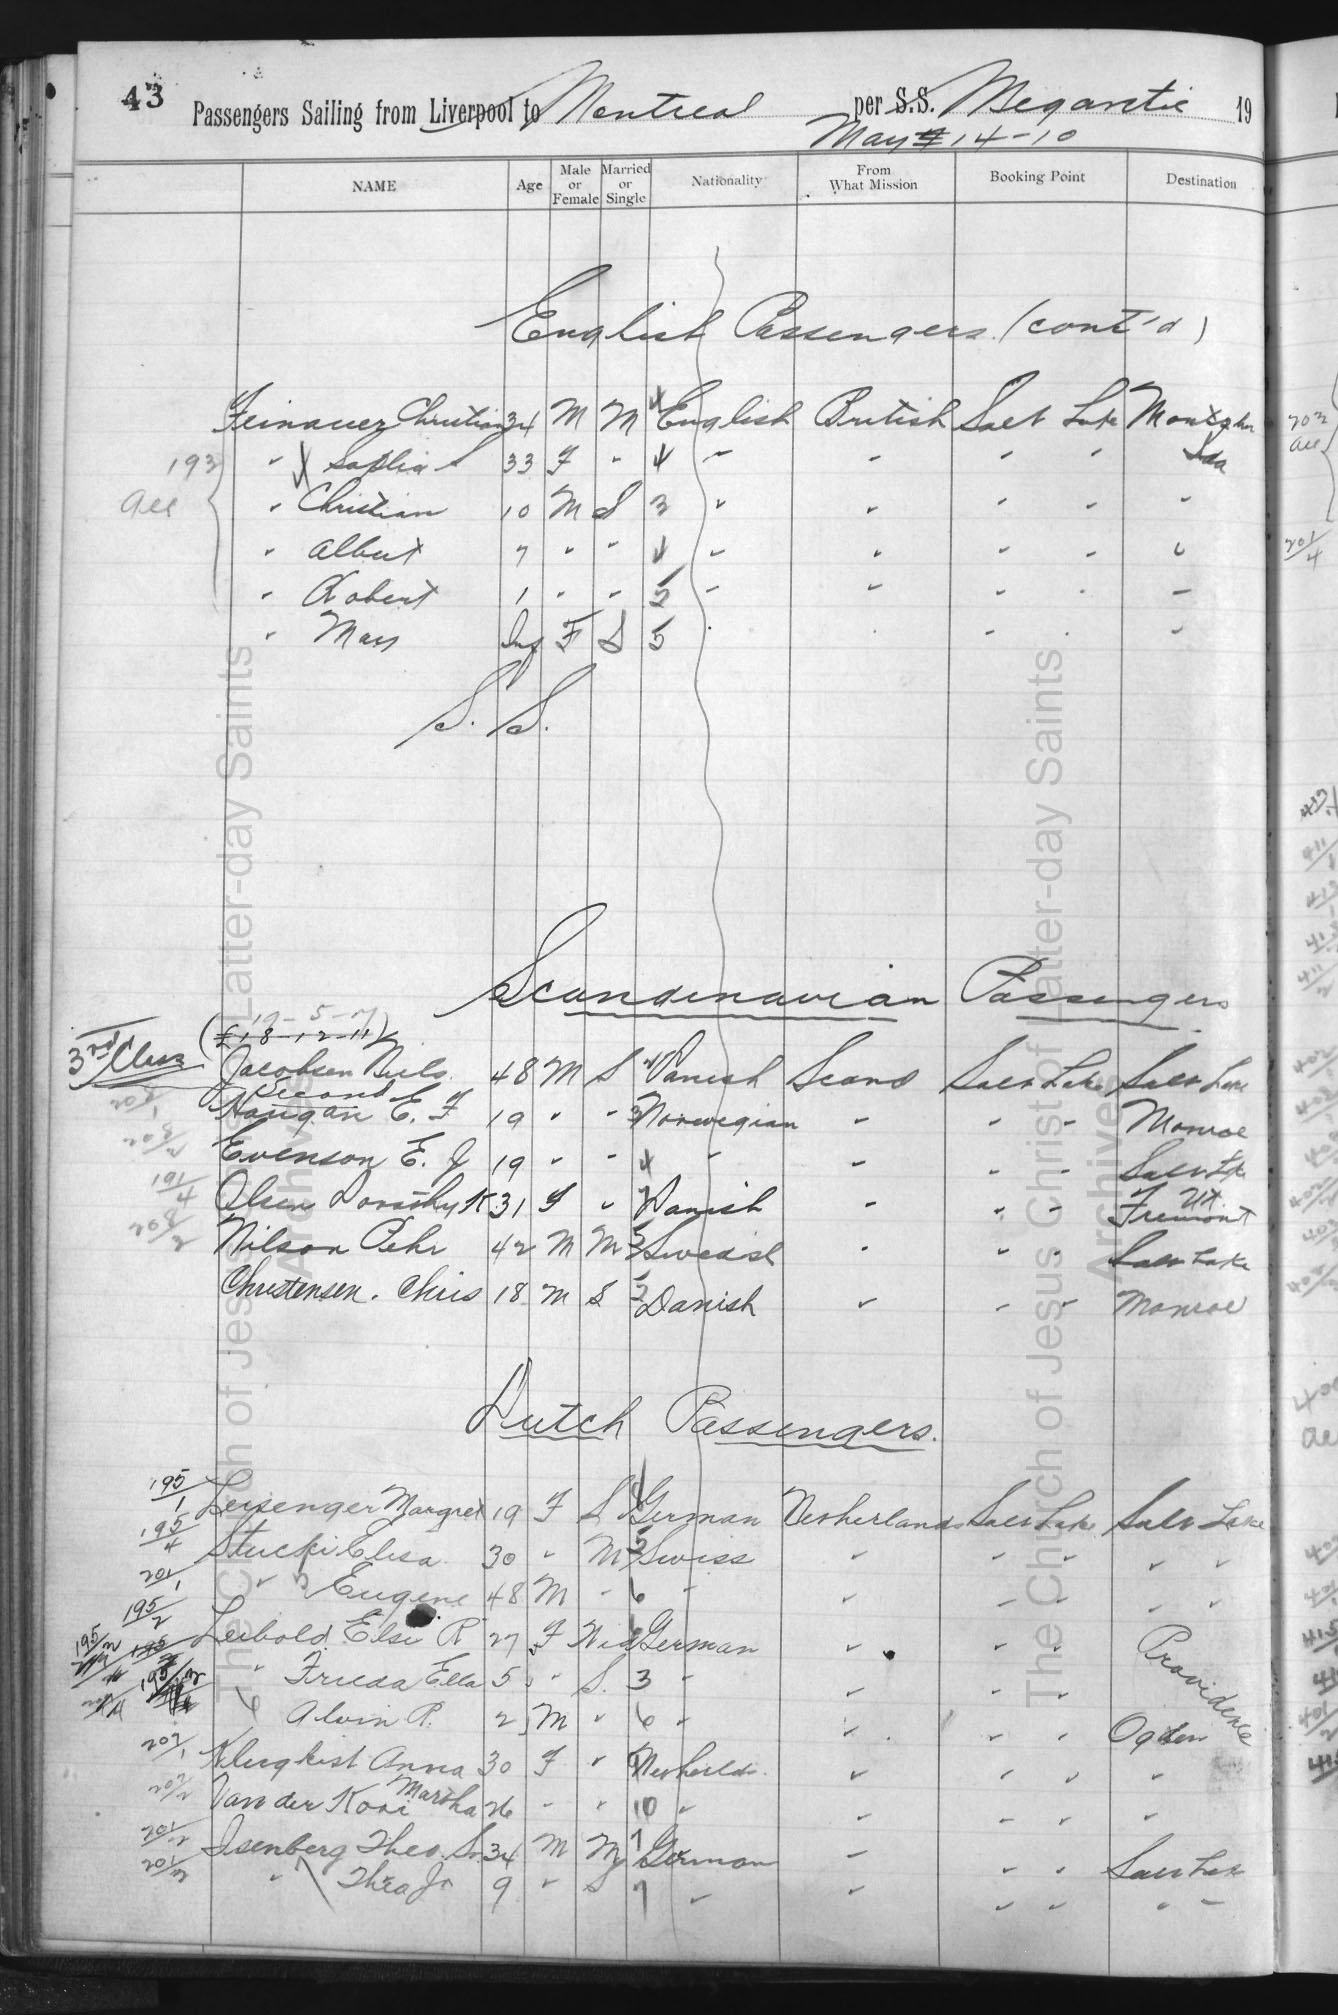 43 Passengers Sailing from Liverpool to Montreal per S.S. Megantic 19
May 14-10
NAME Age Male or Female Married or Single Nationality From What Mission Booking Point Destination
English Passengers (cont'd)
Feinauer Christian 34 M M 4 English British Salt Lake Montpelier
193 " Sophia S 33 F " 4 " " " " Ida
all " Christian 10 M S 3 " " " " "
" Albert 7 " " 4 " " " " "
" Robert 1 " " 5 " " " " "
" Mary Inf F S 5 " " "
S. S.
Scandinavian Passengers
3rd Class (£18-12-11)
Jacobsen Niels 48 M S Danish Scand Salt Lake Salt Lake
Second
Haugan E. F 19 " " 3 Norwegian " " " Monroe
Evenson E. J 19 " " 4 " " " " Salt Lke
191/4 Olsen Dorothy K 31 F " Danish " " " Fremont Ut.
208/2 Nilson Pehr 42 M M 5 Swedish " " " Salt Lake
Christensen. Chris 18 M S 5 Danish " " " Monroe
Dutch Passengers.
195/1 Leisenger Margret 19 F S German Netherlands Salt Lake Salt Lake
195/4 Stucki Elisa 30 " M 5 Swiss " " " " "
201/1 " Eugene 48 M " 6 " " " " " "
195/2 Leibold Elsi R 27 F Wid German " " " Providence
" Frieda Ella 5 " S. 3 " " " "
" Alvin R. 2 M " 6 " " " " Ogden
207/1 Klerqkist Anna 30 F " Netherlds. " " " "
207/2 Van der Kooi Martha 26 " " 10 " " " " "
201/2 Isenberg Theo. Sr. 34 M M 7 German " " " Salt Lake
201/2 " Theo Jr 9 " S 7 " " " " " "
The Church of Jesus Christ of Latter-day Saints
Archives
The Church of Jesus Christ of Latter-day Saints
Archives